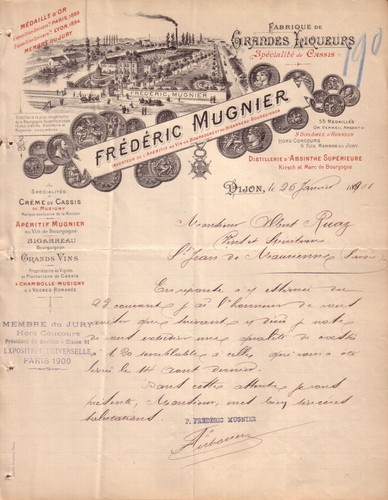 MÉDAILLE D'OR
Exposition Univers^lle PARIS 1889
Exposition Univers^lle LYON 1894
MEMBRE DU JURY
FABRIQUE DE
GRANDES LIQUEURS
Spécialité de CASSIS
190
FRÉDÉRIC MUGNIER
FRÉDÉRIC MUGNIER
INVENTEUR DE L'APÉRITIF AU VIN DE BOURGOGNE ET DU BIGARREAU BOURGUIGNON
55 MÉDAILLES
OR, VERMEIL, ARGENT ETC
9 DIPLÔMES D'HONNEUR
HORS CONCOURS
8 FOIS MEMBRE DU JURY
DISTILLERIE D'ABSINTHE SUPÉRIEURE
Kirsch et Marc de Bourgogne
DIJON, le 26 Janvier 1911
SPÉCIALITÉS
CRÈME DE CASSIS
DE MUSIGNY
Marque exclusive de la Maison
APÉRITIF MUGNIER
au Vin de Bourgogne
BIGARREAU
Bourguignon
GRANDS VINS
Propriétaire de Vignes
et Plantations de Cassis
À CHAMBOLLE-MUSIGNY
& À VOSNES-ROMANÉE
MEMBRE du JURY
Hors Concours
EXPOSITION UNIVERSELLE
PARIS 1900
Monsieur Albert Ruaz
Vins et Spiritueux
St Jean de Maurienne
En réponse à votre estimée du
22 courant, j'ai l'honneur de vous
note
de vous expédier une qualité de
à 120 semblable à celle que vous a
été livrée le 14 Août dernier.
Dans cette attente, je vous
présente, Monsieur, mes bien sincères
salutations.
P. FRÉDÉRIC MUGNIER